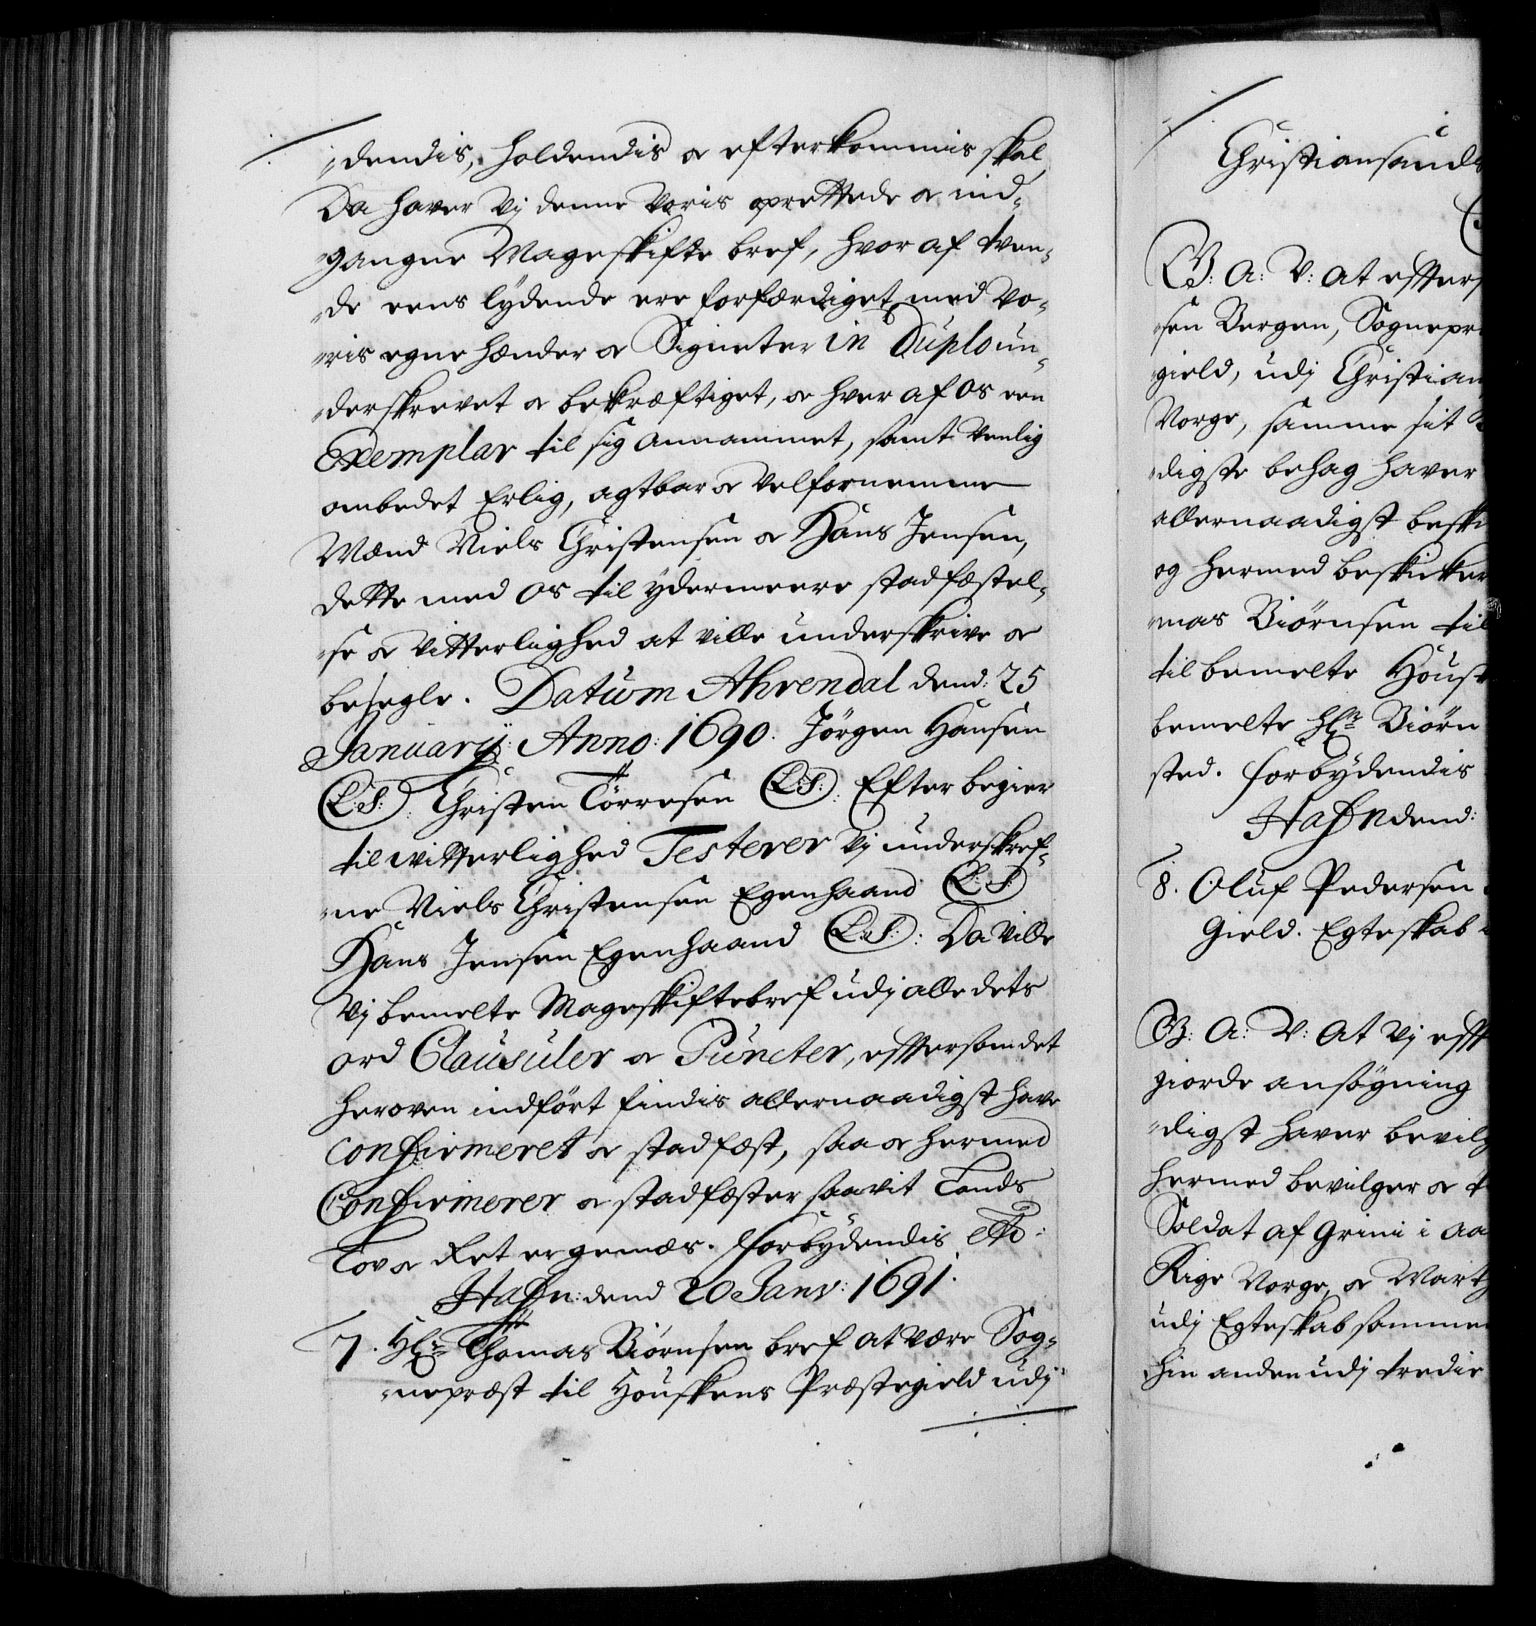 dendis, holdendis oc efterkommis skal,
Da haver Vj denne Voris oprettede oc ind-
gangne Mageskifte bref, hvor af tven-
de eens lydende ere forfærdiget, med vo-
ris egne hænder oc Signeter in Duplo un-
derskrevet oc bekræftiget, oc hver af os een
Exemplar til sig annammet, samt venlig
ombedet Erlig, agtbar oc velfornemme
Mænd Niels Christensen oc Hans Jensen,
dette med os til ydermeere stadfæstel-
se oc vitterlighed at ville underskrive oc
besegle. Datum Ahrendal dend: 25
Januarij: Anno: 1690. Jörgen Hansen
(L:S:) : Christen Törresen (L:S:) : Efter begier
til witterlighed Testerer Vj underskref-
ne Niels Christensen Egenhaand (L:S:)
Hans Jensen Egenhaand (L:S:) : Da ville
Vj bemelte Mageskiftebref udj alle dets
ord Clausuler oc Puncter, eftersom det
heroven indfört findis allernaadigst have
confirmeret oc stadfæst, saa oc hermed
Confirmerer oc stadfæster saavit Lands
Lov oc Ret er gemæs. Forbydendis etc:
Hafn: dend 20 Janv: 1691.
7. Hr: Thomas Biörnsen bref at være Sog-
nepræst til Höuskens Præstegield udj
Christiansands
G: A: V: at efters
sen Bergen, Sognepr
gield, udj Christian
Norge, samme sit
digste behag haver
allernaadigst beski
og hermed beskicker
mas Biörnsen til
til bemelte Höusk
bemelte Hr: Biörn
sted. Forbydendis
Hafn dend:
8. Oluf Pedersen
Gield. Egteskab
G: A: V: At Vj eft
giorde ansögning
digst haver bevilg
hermed bevilger oc t
Soldat af Grini i Aa
Rige Norge, oc Mart
udj Egteskab sammen
hin anden udj tredie